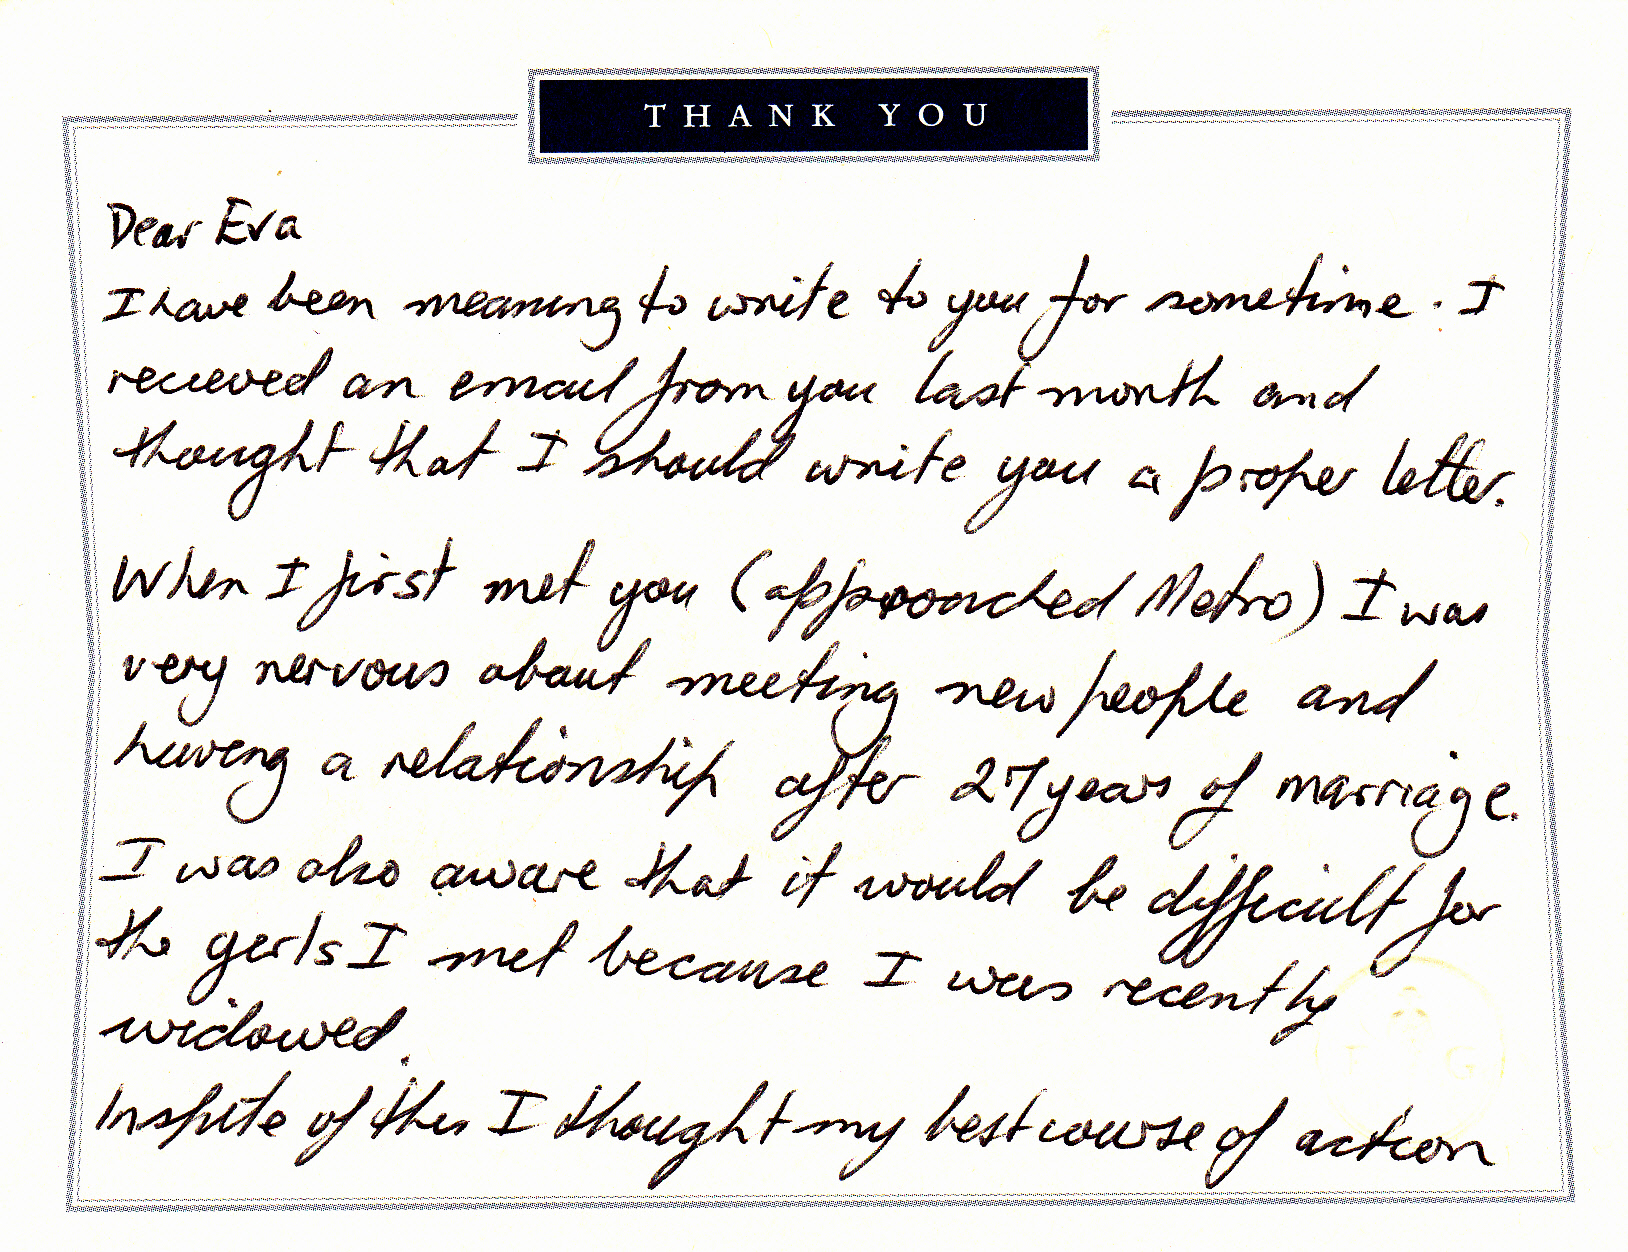 THANK YOU
Dear Eva
I have been meaning to write to you for sometime. I
recieved an email from you last month and
thought that I should write you a proper letter.
When I first met you (approached Metro) I was
very nervous about meeting new people and
having a relationship after 27 years of marriage.
I was also aware that it would be difficult for
the girls I met because I was recently
widowed.
Inspite of this I thought my best course of action